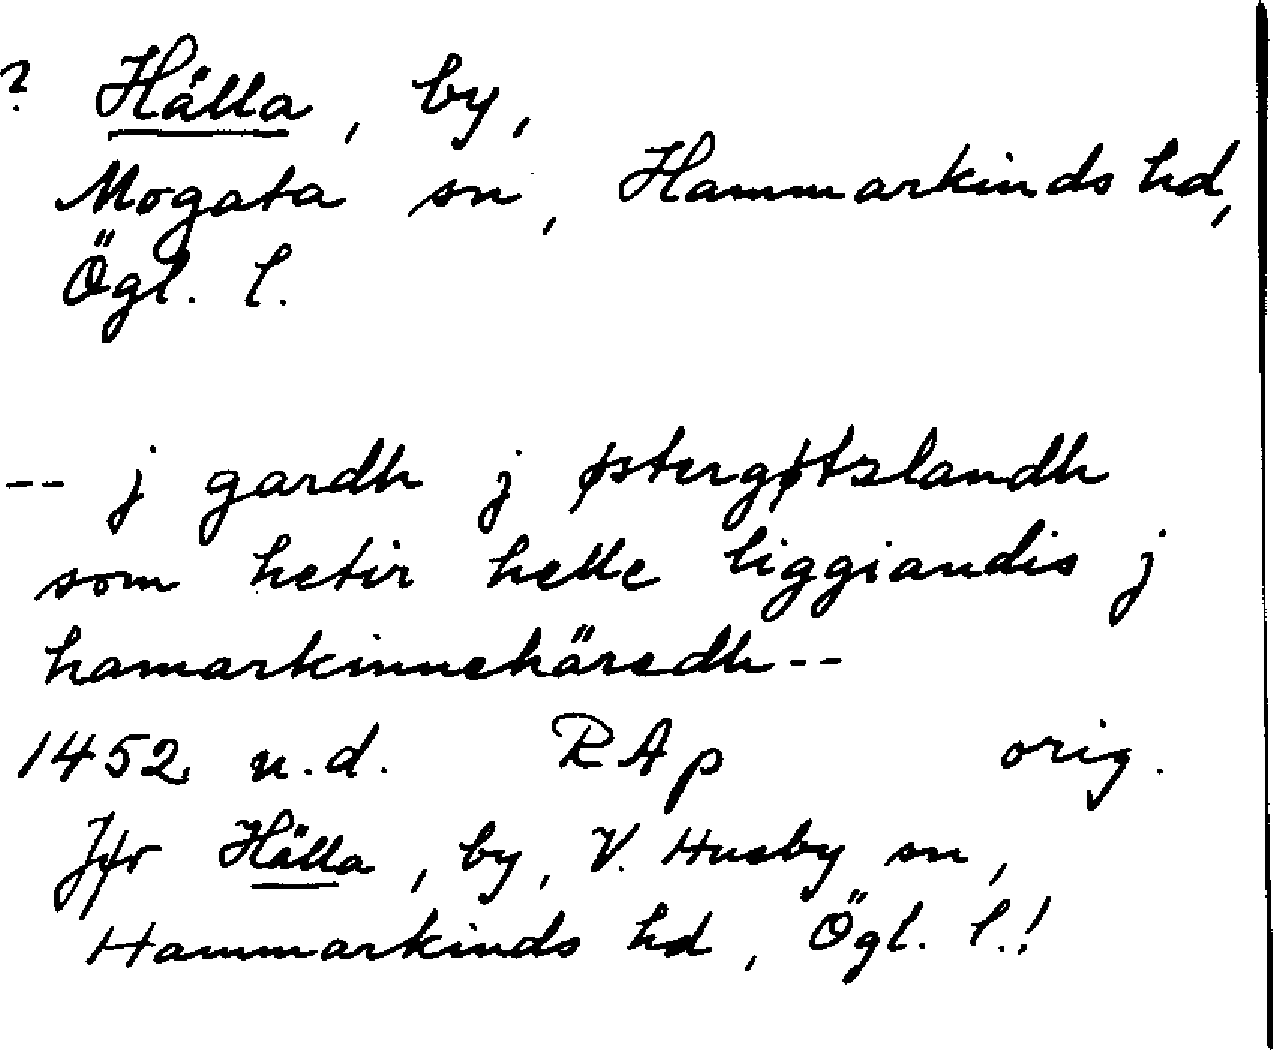 ? Hälla, by,
Mogata sn, Hammarkinds hd,
Ögl. l.
-- j gardh j østergøtzlandh
som hetir helle liggiandis j
hamarkinnehäredh--
1452 u.d. RAp orig.
Jfr Hälla, by, V. Husby sn,
Hammarkinds hd, Ögl. l.!